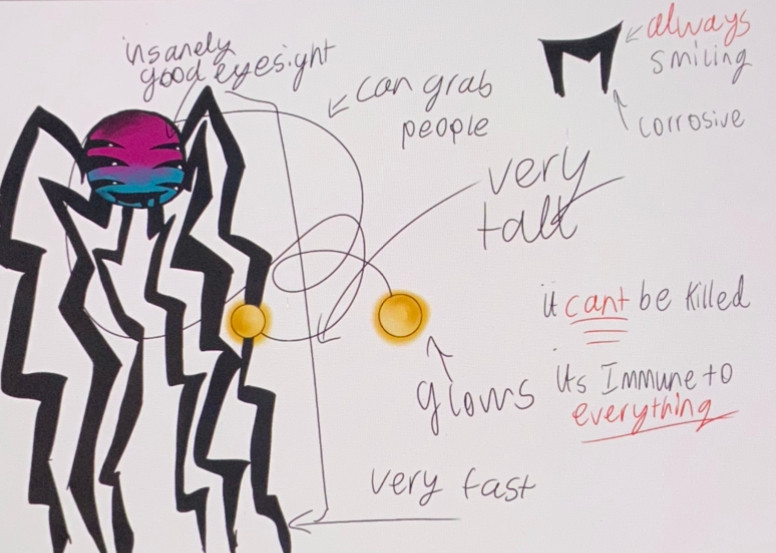 insanely
good eyesight
can grab
people
always
smiling
corrosive
very
tall
it cant be killed
its Immune to
everything
glows
very fast